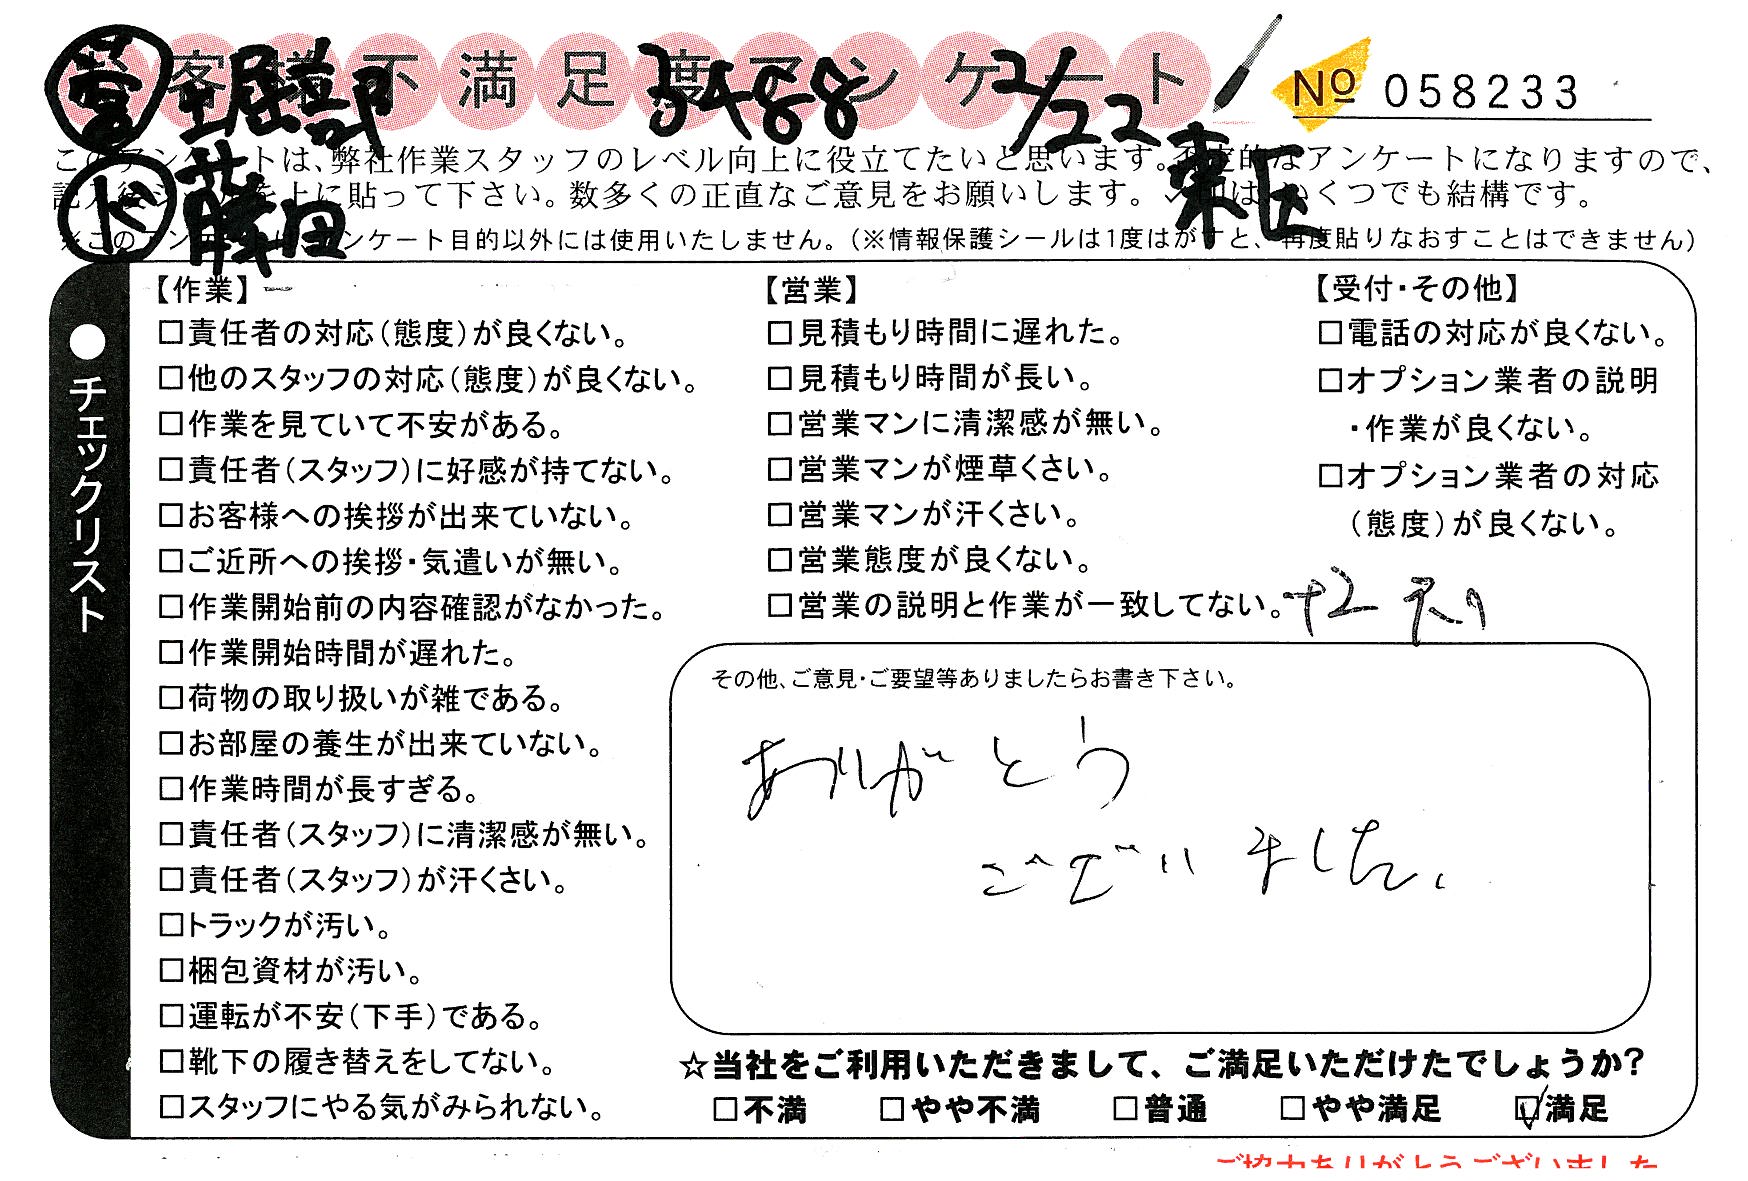 お客様不満足度アンケート
No 058233
営 堀部 3488 2/22
ド 藤田 東区
このアンケートは、弊社作業スタッフのレベル向上に役立てたいと思います。不定期的なアンケートになりますので、
記入後シールを上に貼って下さい。数多くの正直なご意見をお願いします。✓印は、いくつでも結構です。
※このアンケートはアンケート目的以外には使用いたしません。（※情報保護シールは1度はがすと、再度貼りなおすことはできません）
●チェックリスト
【作業】
□責任者の対応（態度）が良くない。
□他のスタッフの対応（態度）が良くない。
□作業を見ていて不安がある。
□責任者（スタッフ）に好感が持てない。
□お客様への挨拶が出来ていない。
□ご近所への挨拶・気遣いが無い。
□作業開始前の内容確認がなかった。
□作業開始時間が遅れた。
□荷物の取り扱いが雑である。
□お部屋の養生が出来ていない。
□作業時間が長すぎる。
□責任者（スタッフ）に清潔感が無い。
□責任者（スタッフ）が汗くさい。
□トラックが汚い。
□梱包資材が汚い。
□運転が不安（下手）である。
□靴下の履き替えをしてない。
□スタッフにやる気がみられない。
【営業】
□見積もり時間に遅れた。
□見積もり時間が長い。
□営業マンに清潔感が無い。
□営業マンが煙草くさい。
□営業マンが汗くさい。
□営業態度が良くない。
□営業の説明と作業が一致してない。
【受付・その他】
□電話の対応が良くない。
□オプション業者の説明
・作業が良くない。
□オプション業者の対応
（態度）が良くない。
その他、ご意見・ご要望等ありましたらお書き下さい。
ありがとう
ございました。
☆当社をご利用いただきまして、ご満足いただけたでしょうか?
□不満 □やや不満 □普通 □やや満足 ☑満足
ご協力ありがとうございました